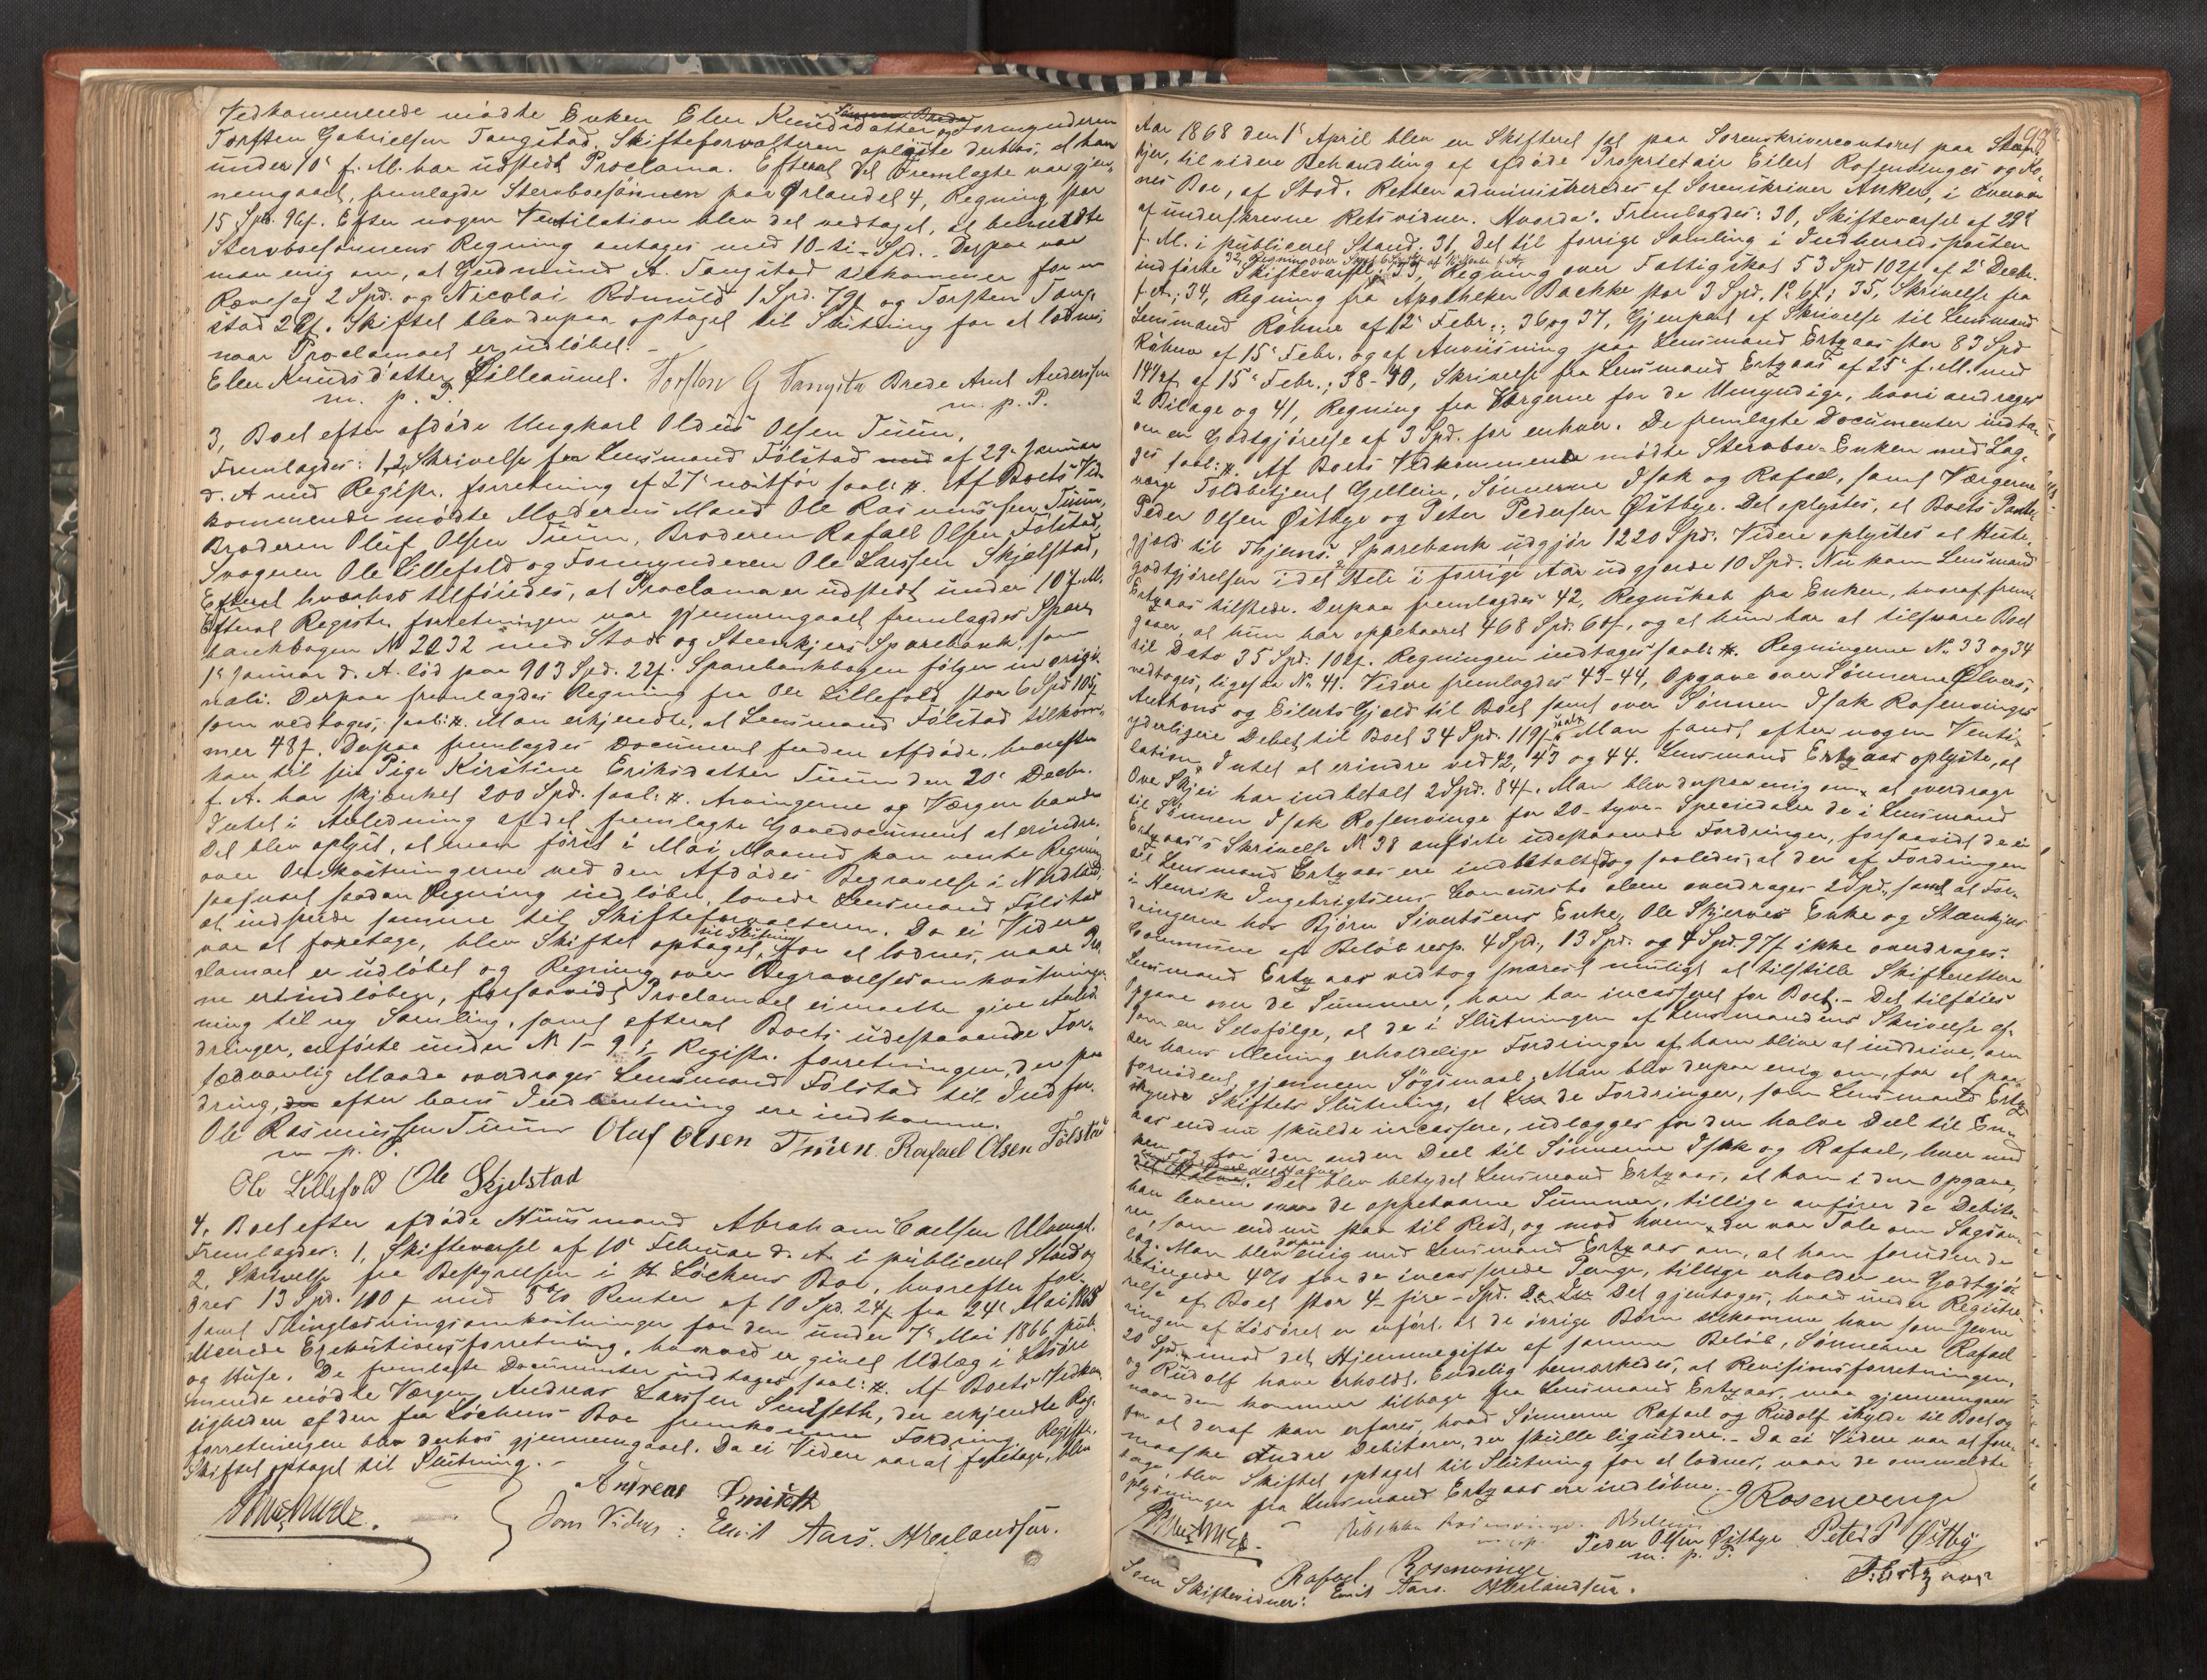 Vedkommende mødte Enken Elen Knudsdatter, Sønnen Brede og Formynderen
Torsten Gabrielsen Tangstad. Skifteforvalteren oplyste derhos, at han
under 10de f. M. har udstedt Proclama. Efterat det Fremlagte var gjen-
nemgaaet, fremlagde Stervbosønnen paa Ørlandet 4, Regning stor
15 Spd. 96 f. Efter nogen Ventilation blev det vedtaget, at bemeldte
Stervbosønnens Regning antages med 10-ti-Spd. Derpaa var
man enig om, at Gudmund A. Tangstad tilkommer for en
2 Spd. og Nicolai Rømuld 1 Spd. 79 f og Torsten Tang-
stad 22 f. Skiftet blev derpaa optaget til Slutning for at lodnes,
naar Proclamaet er udløbet. -
Elen Knudsdatter Qilleaunet. Torsten G Tangsta Brede Arnt Andersen
m. p. P. m. p. P.
3, Boet efter afdøde Ungkarl Oldus Olsen Tuun,
Fremlagdes: 1, 2, Skrivelse fra Lensmand Følstad af 29de Januar
d. A med Registr. forretning af 27de næstfør saal: #. Af Boets Ved-
kommende mødte Moderens Mand Ole Rasmussen Tuun,
Broderen Oluf Olsen Tuun, Broderen Rafael Olsen Følstad,
Svogeren Ole Lillefold og Formynderen Ole Larssen Skjelstad,
hvorhos tilføiedes, at Proclama er udstedt under 10 f. M.
Efterat Registr. forretningen var gjennemgaaet fremlagdes Spare-
bankbogen No 2232 med Stods og Steenkjers Sparebank, som
1ste Januar d. A. lød paa 903 Spd. 22 f. Sparebankbogen følger in origi-
nali. Derpaa fremlagdes Regning fra Ole Lillefold stor 6 Spd 105 f
som vedtoges, saal: #. Man erkjendte, at Lensmand Følstad tilkom-
mer 48 f. Derpaa fremlagdes Document fra den Afdøde, hvorefter
han til sin Pige Kirstine Eriksdatter Tuun den 20de Decbr.
f. A. har skjænket 200 Spd. saal: #. Arvingerne og Værgen havde
Intet i Anledning af det fremlagte Gavedocument at erindre.
Det blev oplyst, at man først i Mai Maaned kan vente Regning
over Omkostningerne ved den Afdødes Begravelse i Nordland,
saasnart saadan Regning indløber, lovede Lensmand Følstad
at indsende samme til Skifteforvalteren. Da ei Videre
var at foretage, blev Skiftet optaget til Slutning, for at lodnes, naar Pro-
clamaet er udløbet og Regning over Begravelsesomkostninger-
ne er indløben, forsaavidt Proclamaet ei maatte give Anled-
ning til ny Samling, samt efterat Boets udestaaende For-
dringer, anførte under No 1-9 i Registr. forretningen, der paa
sædvanlig Maade overdrages Lensmand Følstad til Indfor-
dring, efter hans Indhentning ere indkomne.
Ole Rasmussen Tuun Oluf Olsen Tuuen. Rafael Olsen Følsta
m. p. P.
Ole Lillefold Ole Skjelstad
4. Boet efter afdøde Huusmand Abraham
Fremlagdes: 1, Skiftevarsel af 10de Februar d. A. i publiceret Stand og
2, Skrivelse fra Bestyrelsen i H Løckens Boe, hvorefter for-
dres 13 Spd. 110 f med 5 % Renter af 10 Spd. 24 f fra 24de Mai 1865
samt Thinglæsningsomkostninger for den under 7de Mai 1866 pub-
licerede Executionsforretning, hvorved er givet Udlæg i Løsøre
og Huse. De fremlagte Documenter indtages saal: #. Af Boets Vedkom-
mende mødte Værgen Andreas Larssen Smidseth, der erkjendte Rig-
tigheden af den fra Løckens Boe fremkomne Fordring. Registr.
forretningen blev derhos gjennemgaaet. Da ei Videre var at foretage, blev
Skiftet optaget til Slutning. -
Andreas Smiseth
Som Vidner: Emil Aars. HErlandsen.
Aar 1868 den 1ste April blev en Skifteret sat paa Sorenskrivercontoret paa Steen-
kjer, til videre Behandling af afdøde Proprietair Eilert Rosenvinges og Ko-
nes Boe, af Stod. Retten administreredes af Sorenskriver Anker, i Overvær
af underskrevne Retsvidner. Hvorda: Fremlagdes: 30, Skiftevarsel af 29de
f. M. i publiceret Stand. 31, Det til forrige Samling i Indherredsposten
indførte Skiftevarsel; 33, Regning over Fattigskat 53 Spd 102 f. af 2de Decbr.
f. A.; 34, Regning fra Apotheker Bachke stor 3 Spd. 1 # 6 f; 35, Skrivelse fra
Lensmand Røhme af 12te Febr.; 36 og 37, Gjenpart af Skrivelse til Lensmand
Røhme af 15de Febr. og af Anviisning paa Lensmand Ertzaas stor 83 Spd
af 15de Febr.; 38-40, Skrivelse fra Lensmand Ertzaas af 25de f. M. med
2 Bilage og 41, Regning fra Værgerne for de Umyndige, hvori andrages
om en Godtgjørelse af 3 Spd. for enhver. De fremlagte Documenter indta-
ges saal: #. Af Boets Vedkommende mødte Stervbo-Enken med Lag-
værge Toldbetjent Gellein, Sønnerne Isak og Rafael, samt Værgerne
Peder Olsen Østbye og Peter Pedersen Østbye. Det oplystes, at Boets Pante-
gjæld til Thjems. Sparebank udgjør 1220 Spd. Videre oplystes at Huste-
godtgjørelsen i det Hele i forrige Aar udgjorde 10 Spd. Nu kom Lensmand
Ertzaas tilstede. Derpaa fremlagdes 42, Regnskab fra Enken, hvoraf frem-
gaaer, at hun har oppebaaret 468 Spd. 60 f, og at hun har at tilsvare Boet
til Dato 35 Spd. 102 f. Regningen indtages saal: #. Regningerne No 33 og 34
vedtoges, ligesaa No 41. Videre fremlagdes 43-44, Opgave over Sønnerne Ølvers,
Anthons og Eilerts Gjeld til Boet samt over Sønnen Isak Rosenvinges
yderligere Debet til Boet 34 Spd. 119 f. Man fandt efter nogen Venti-
lation Intet at erindre ved 42, 43 og 44. Lensmand Ertzaas oplyste, at
Ove Skjei har indbetalt 2 Spd. 84 f. Man blev derpaa enig om, at overdrage
til Sønnen Isak Rosenvinge for 20-tyve-Speciedaler de i Lensmand
Ertzaas's Skrivelse No 38 anførte udestaaende Fordringer, forsaavidt de ei
til Lensmand Ertzaas ere indbetalte, dog saaledes, at der af Fordringen
i Henrik Ingebrigtsens Concursbo alene overdrages 2 Spd., samt at For-
dringerne hos Bjørn Sivertsens Enke, Ole Skjerves Enke og Steenkjer
Commune af Beløb resp. 4 Spd., 13 Spd. og 4 Spd. 97 f ikke overdrages.
Lensmand Ertzaas vedtog snarest muligt at tilstille Skifteretten
Opgave over de Summer, han har incasseret for Boet. - Det tilføies
som en Selvfølge, at de i Slutningen af Lensmandens Skrivelse ef-
ter hans Mening erholdelige Fordringer af ham blive at inddrive, om
fornødent, gjennem Søgsmaal. Man blev derpaa enig om, for at paa-
skynde Skiftets Slutning, at de Fordringer, som Lensmand Ertz-
aas endnu skulde incassere, udlægges for den halve Deel til En-
ken og for den anden Deel til Sønnerne Isak og Rafael, hver med
Det blev betydet Lensmand Ertzaas, at han i den Opgave,
han leverer over de oppebaarne Summer, tillige anfører de Debito-
rer, som endnu staa til Rest, og mod hvem der var Tale om Sagsan-
læg. Man blev derpaa enig med Lensmand Ertzaas om, at han foruden de
betingede 4 % for de incasserede Penge, tillige erholder en Godtgjø-
relse af Boet stor 4-fire-Spd. Det gjentages, hvad under Registre-
ringen af Løsøret er anført, at de øvrige Børn tilkomme hver som Jevne
20 Spd. imod det Hjemmegifte af samme Beløb, Sønnerne Rafael
og Rudolf have erholdt. Endelig bemærkedes, at Revisionsforretningen,
naar den kommer tilbage fra Lensmand Ertzaas, maa gjennemgaaes
for at deraf kan erfares, hvad Sønnerne Rafael og Rudolf skylde til Boet og
maaske Andre Debitorer, der skulle liquidere. - Da ei Videre var at fore-
tage, blev Skiftet optaget til Slutning for at lodnes, naar de ommeldte
Oplysninger fra Lensmand Ertzaas ere indløbne. - JRosenvinge
Peder Olsen Østbye Peter P Østby
m. p. P.
Rafael Rosenvinge
Som Skiftevidner: Emil Aars. HErlandsen.